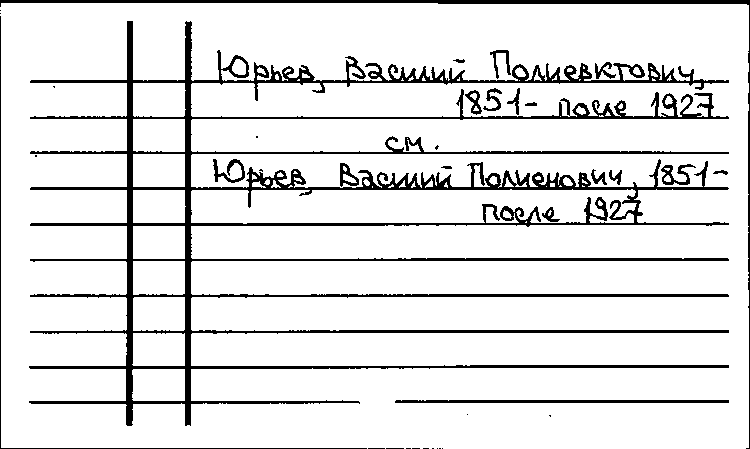 Юрьев, Василий Полиевктович,
1851- после 1927
см.
Юрьев, Василий Полиенович, 1851-
после 1927